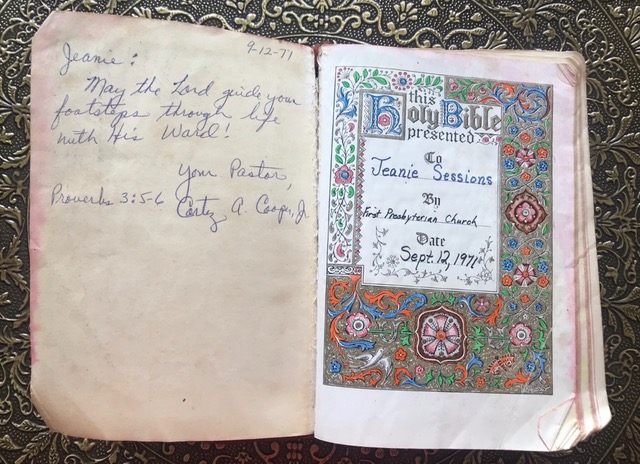 9-12-71
Jeanie:
May the Lord guide your
footsteps through life
with His Word!
Your Pastor,
Proverbs 3:5-6 Cortez A. Cooper, Jr
this
Holy Bible
presented
To
Jeanie Sessions
By
First Presbyterian Church
Date
Sept. 12, 1971